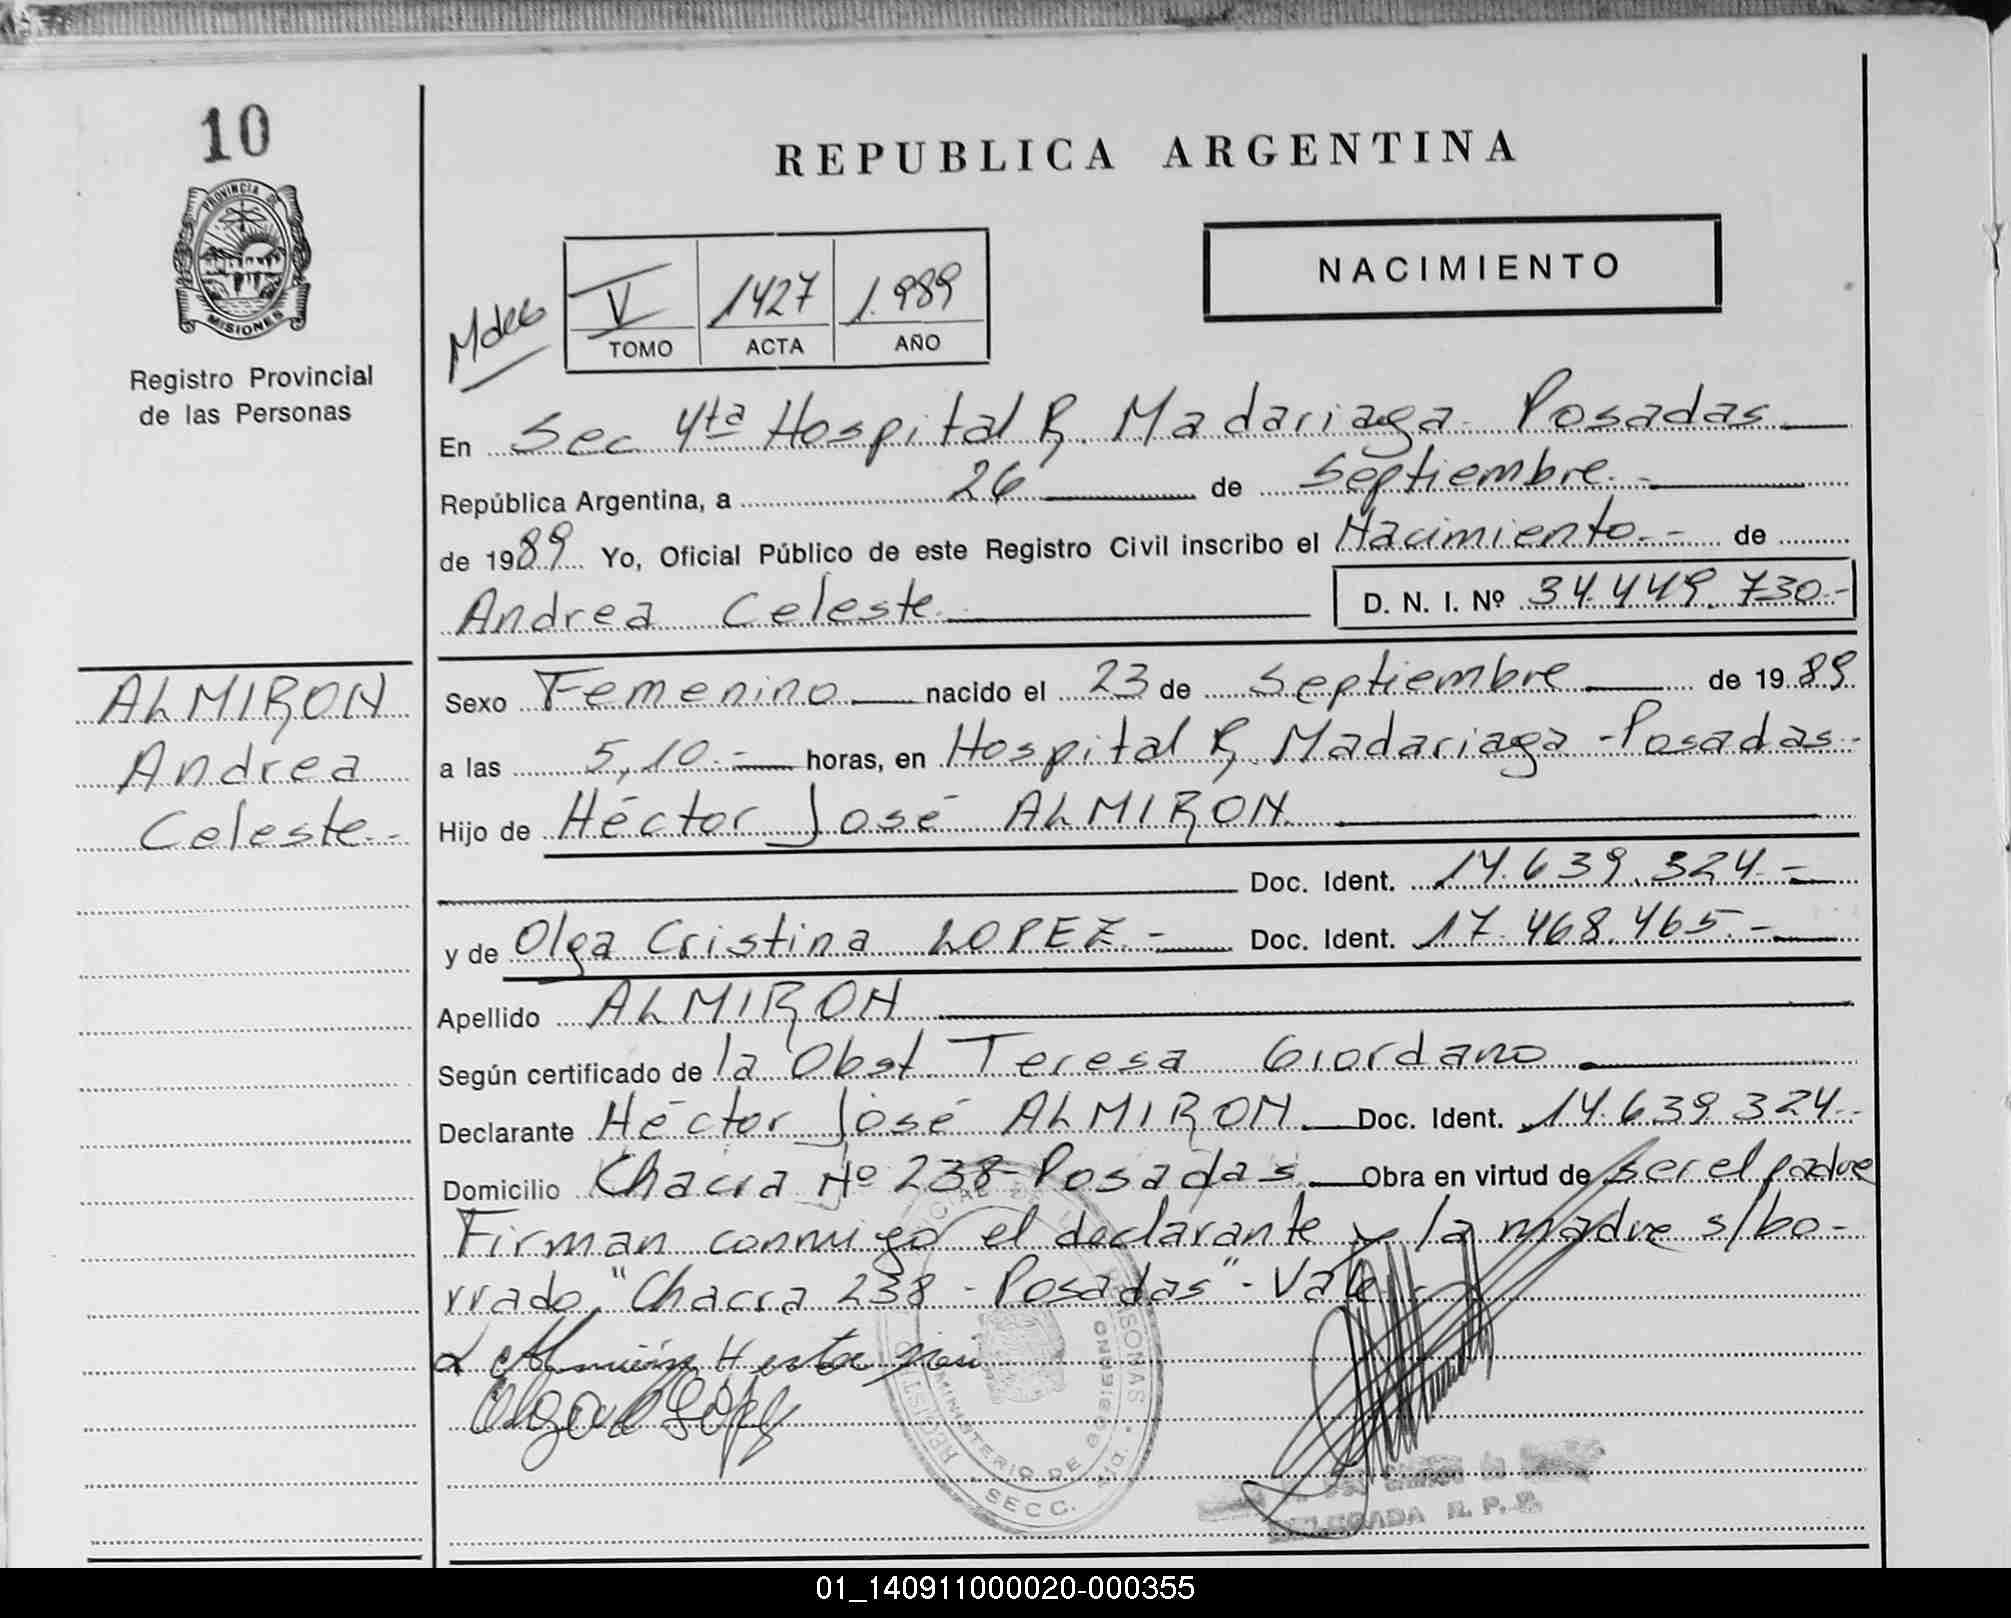 10
PROVINCIA DE
MISIONES
Registro Provincial
de las Personas
REPUBLICA ARGENTINA
NACIMIENTO
V 1427 1.989
TOMO ACTA AÑO
En Sec 4ta Hospital R. Madariaga Posadas
República Argentina, a 26 de Septiembre.-
de 1989 Yo, Oficial Público de este Registro Civil inscribo el Nacimiento.- de
Andrea Celeste
D. N. I. Nº 34.449.730.-
ALMIRON
Andrea
Celeste.-
Sexo Femenino nacido el 23 de Septiembre de 1989
a las 5,10.- horas, en Hospital R. Madariaga - Posadas.-
Hijo de Héctor José ALMIRON
Doc. Ident. 14.639.324.-
y de Olga Cristina LOPEZ.- Doc. Ident. 17.468.465.-
Apellido ALMIRON
Según certificado de la Obst. Teresa Giordano
Declarante Héctor José ALMIRON Doc. Ident. 14.639.324.-
Domicilio Chacra Nº 238-Posadas Obra en virtud de ser el padre
Firman conmigo el declarante y la madre s/bo-
rrado "Chacra 238 - Posadas"- Vale
MINISTERIO DE GOBIERNO
SECC.
DELEGADA R. P. P.
01_140911000020-000355